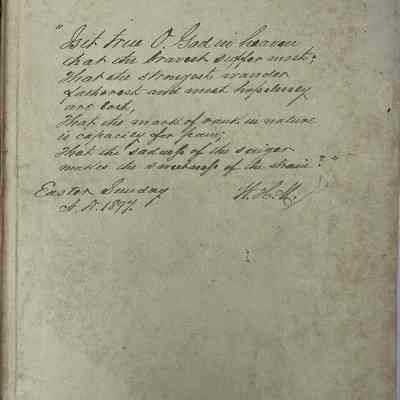 "Is it true O. God in heaven
that the bravest suffer most;
That the strongest wander
fatherest and most hopelessly
are lost,
That the mark of rank in nature
is capacity for pain;
That the sadness of the singer
makes the sweetness of the strain?"
Easter Sunday H. H. M.
A. D. 1897.